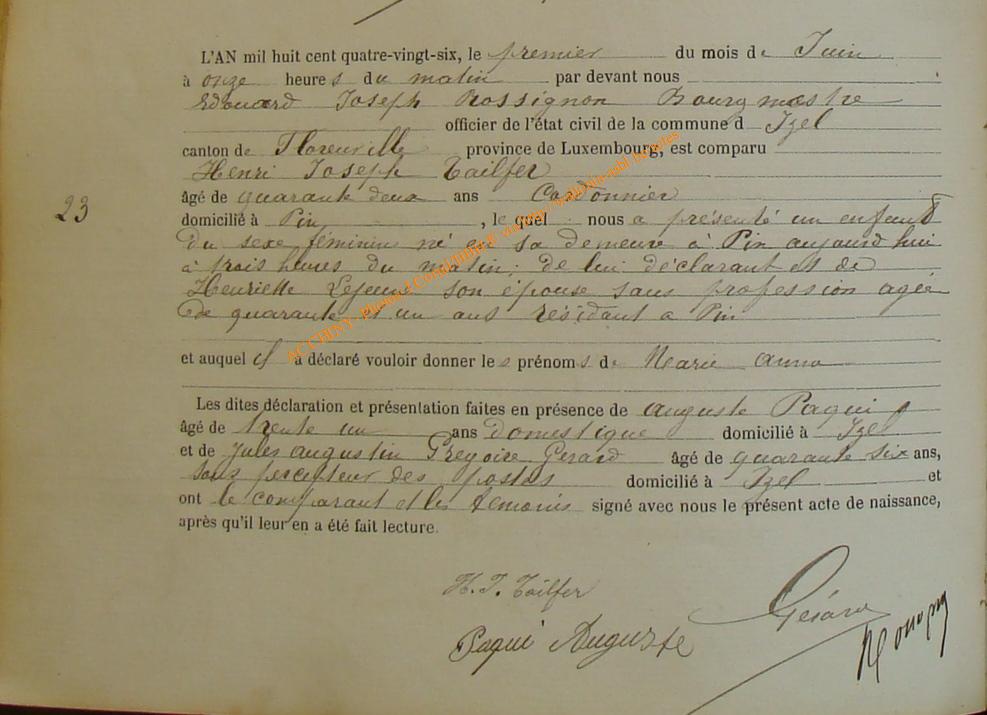 L'AN mil huit cent quatre-vingt-six, le premier du mois de Juin
à onze heures du matin par devant nous
Edouard Joseph Rossignon Bourgmestre
officier de l'état civil de la commune d Izel
canton de Florenville province de Luxembourg, est comparu
Henri Joseph Tailfer
âgé de quarante deux ans Cordonnier
23
domicilié à Pin, lequel nous a présenté un enfant
du sexe féminin né en sa demeure à Pin aujourd'hui
à trois heures du matin; de lui déclarant et de
Henriette Lejeune son épouse sans profession agée
de quarante et un ans résidant a Pin
et auquel il a déclaré vouloir donner les prénoms de Marie Anna
Les dites déclaration et présentation faites en présence de Auguste Paqui
âgé de trente un ans domestique domicilié à Izel
et de Jules Augustin Grégoire Gerard âgé de quarante six ans,
sous percepteur des postes domicilié à Izel et
ont le comparant et les temoins signé avec nous le présent acte de naissance,
après qu'il leur en a été fait lecture.
H. J. Tailfer
Gérard
Paqui Auguste